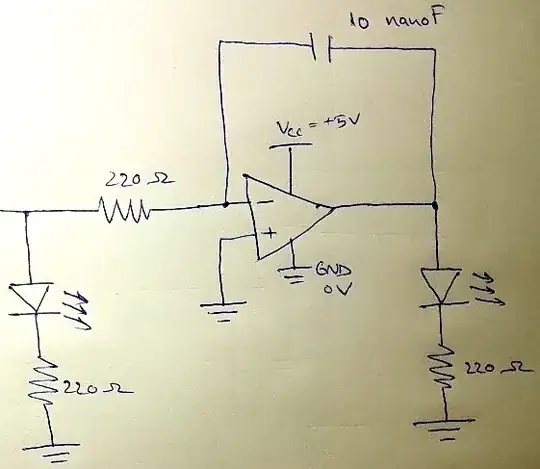 10 nanoF
Vcc = +5V
220 Ω
−
+
GND
0V
220 Ω
220 Ω